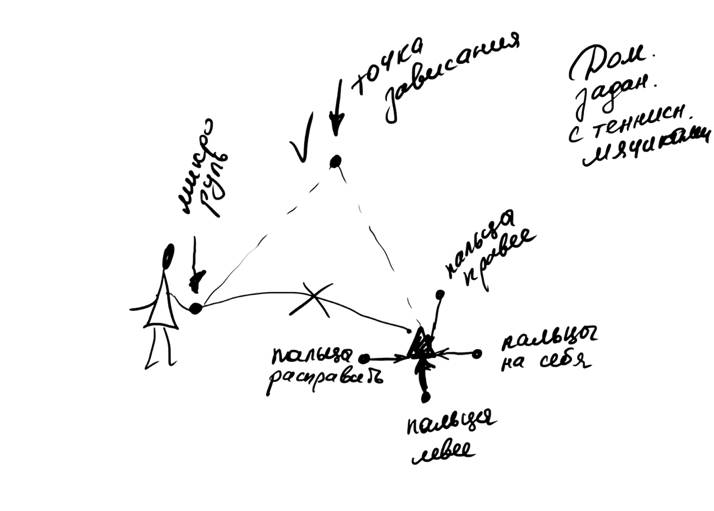 точка
зависания
Дом.
задан.
с теннисн.
мячиками
микро
руль
пальцы
правее
пальцы
расправить
пальцы
на себя
пальцы
левее